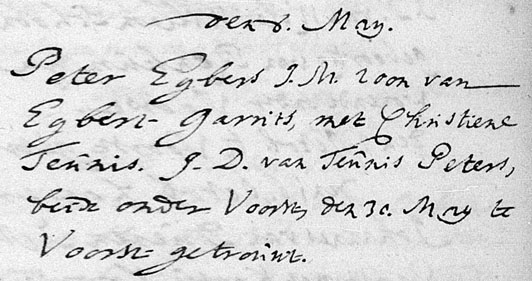 den 8. May.
Peter Egbers J. M. zoon van
Egbert Garrits, met Christiene
Teunis. J. D. van Teunis Peters,
beide onder Voorst, den 30. May te
Voorst getrouwt.